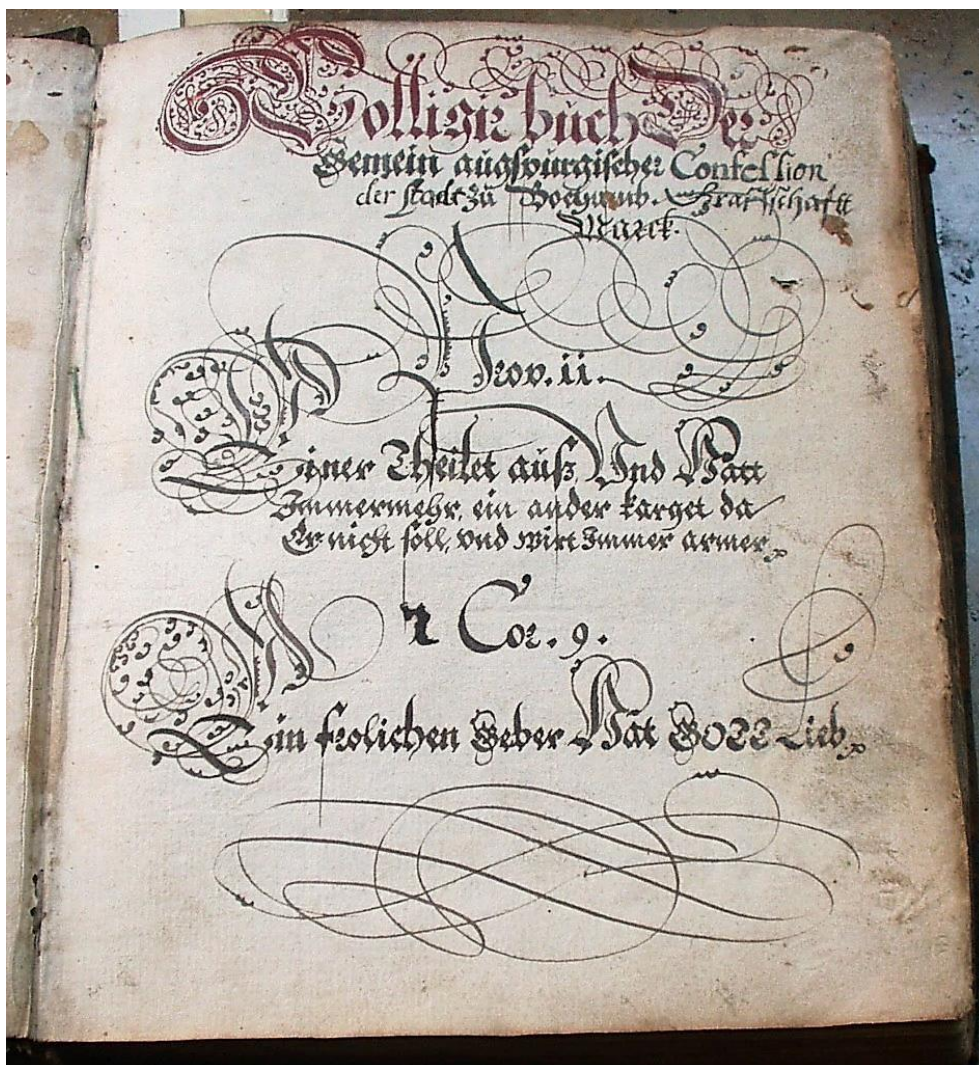 Kolligir buch Der
Gemein augspurgischer Confession
der stadt zu Bochumb. Graffschafft
Marck.
Prov. ii.
Einer Theilet auß Und Hatt
Immermehr, ein ander karget da
Er nicht soll, und wirt Immer armer
2 Cor. 9.
Ein frolichen Geber Hat GOTT Lieb